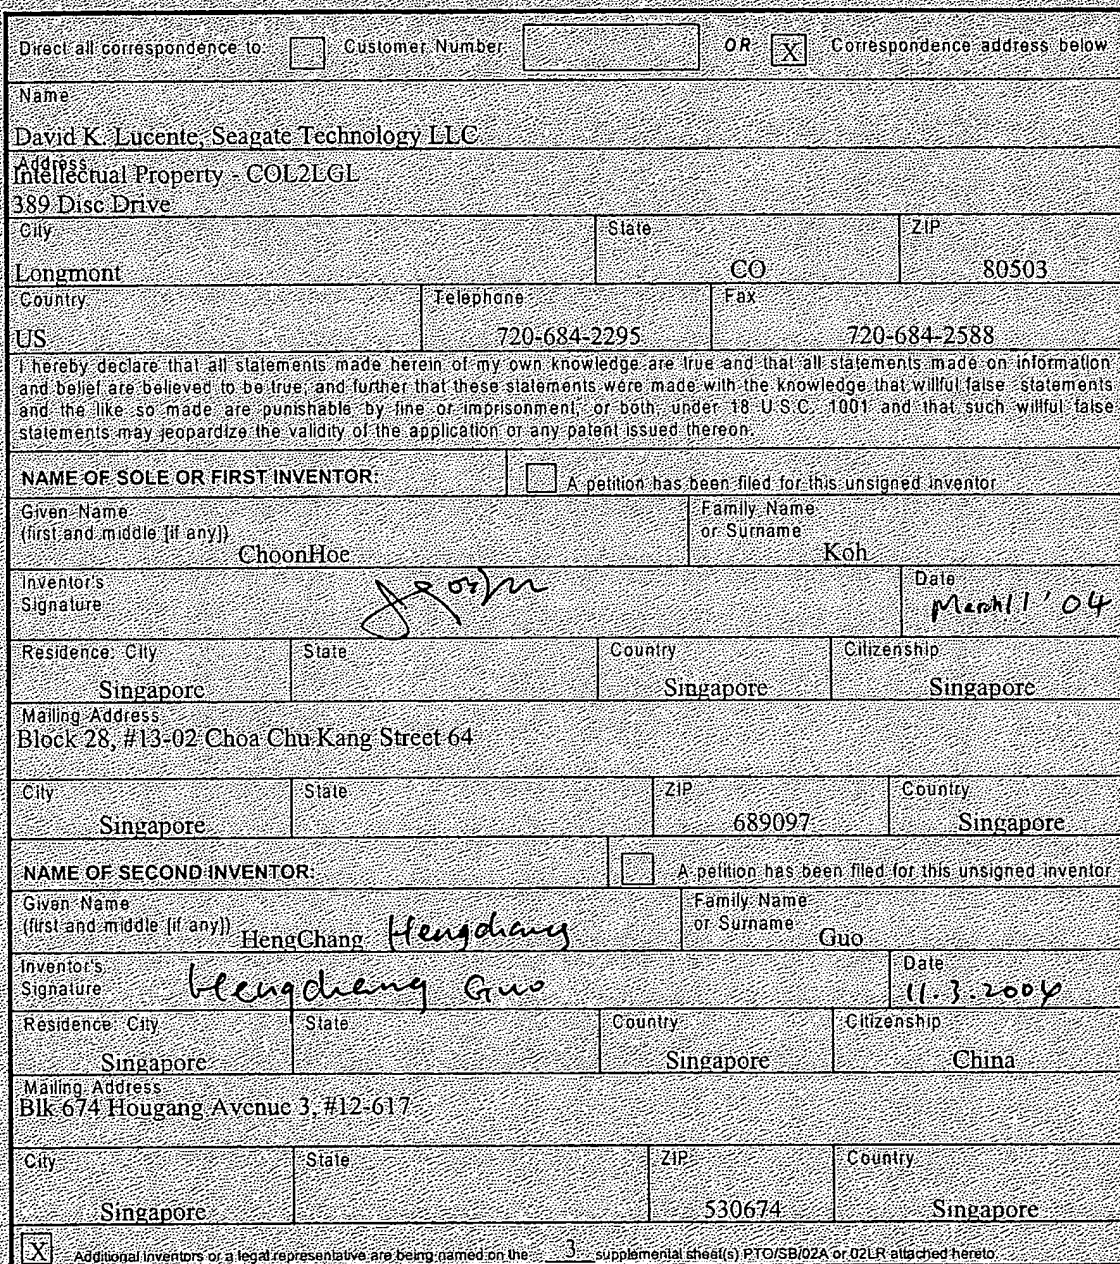 Direct all correspondence to: Customer Number OR X Correspondence address below
Name
David K. Lucente, Seagate Technology LLC
Address
Intellectual Property - COL2LGL
389 Disc Drive
City State ZIP
Longmont CO 80503
Country Telephone Fax
US 720-684-2295 720-684-2588
I hereby declare that all statements made herein of my own knowledge are true and that all statements made on information
and belief are believed to be true, and further that these statements were made with the knowledge that willful false statements
and the like so made are punishable by fine or imprisonment, or both, under 18 U.S.C. 1001 and that such willful false
statements may jeopardize the validity of the application or any patent issued thereon.
NAME OF SOLE OR FIRST INVENTOR: A petition has been filed for this unsigned inventor
Given Name Family Name
(first and middle [if any]) or Surname
ChoonHoe Koh
Inventor's Date
Signature March 11 '04
Residence: City State Country Citizenship
Singapore Singapore Singapore
Mailing Address
Block 28, #13-02 Choa Chu Kang Street 64
City State ZIP Country
Singapore 689097 Singapore
NAME OF SECOND INVENTOR: A petition has been filed for this unsigned inventor
Given Name Family Name
(first and middle [if any]) or Surname
HengChang Hengchang Guo
Inventor's Date
Signature Hengchang Guo 11.3.2004
Residence: City State Country Citizenship
Singapore Singapore China
Mailing Address
Blk 674 Hougang Avenue 3, #12-617
City State ZIP Country
Singapore 530674 Singapore
X Additional inventors or a legal representative are being named on the 3 supplemental sheet(s) PTO/SB/02A or 02LR attached hereto.